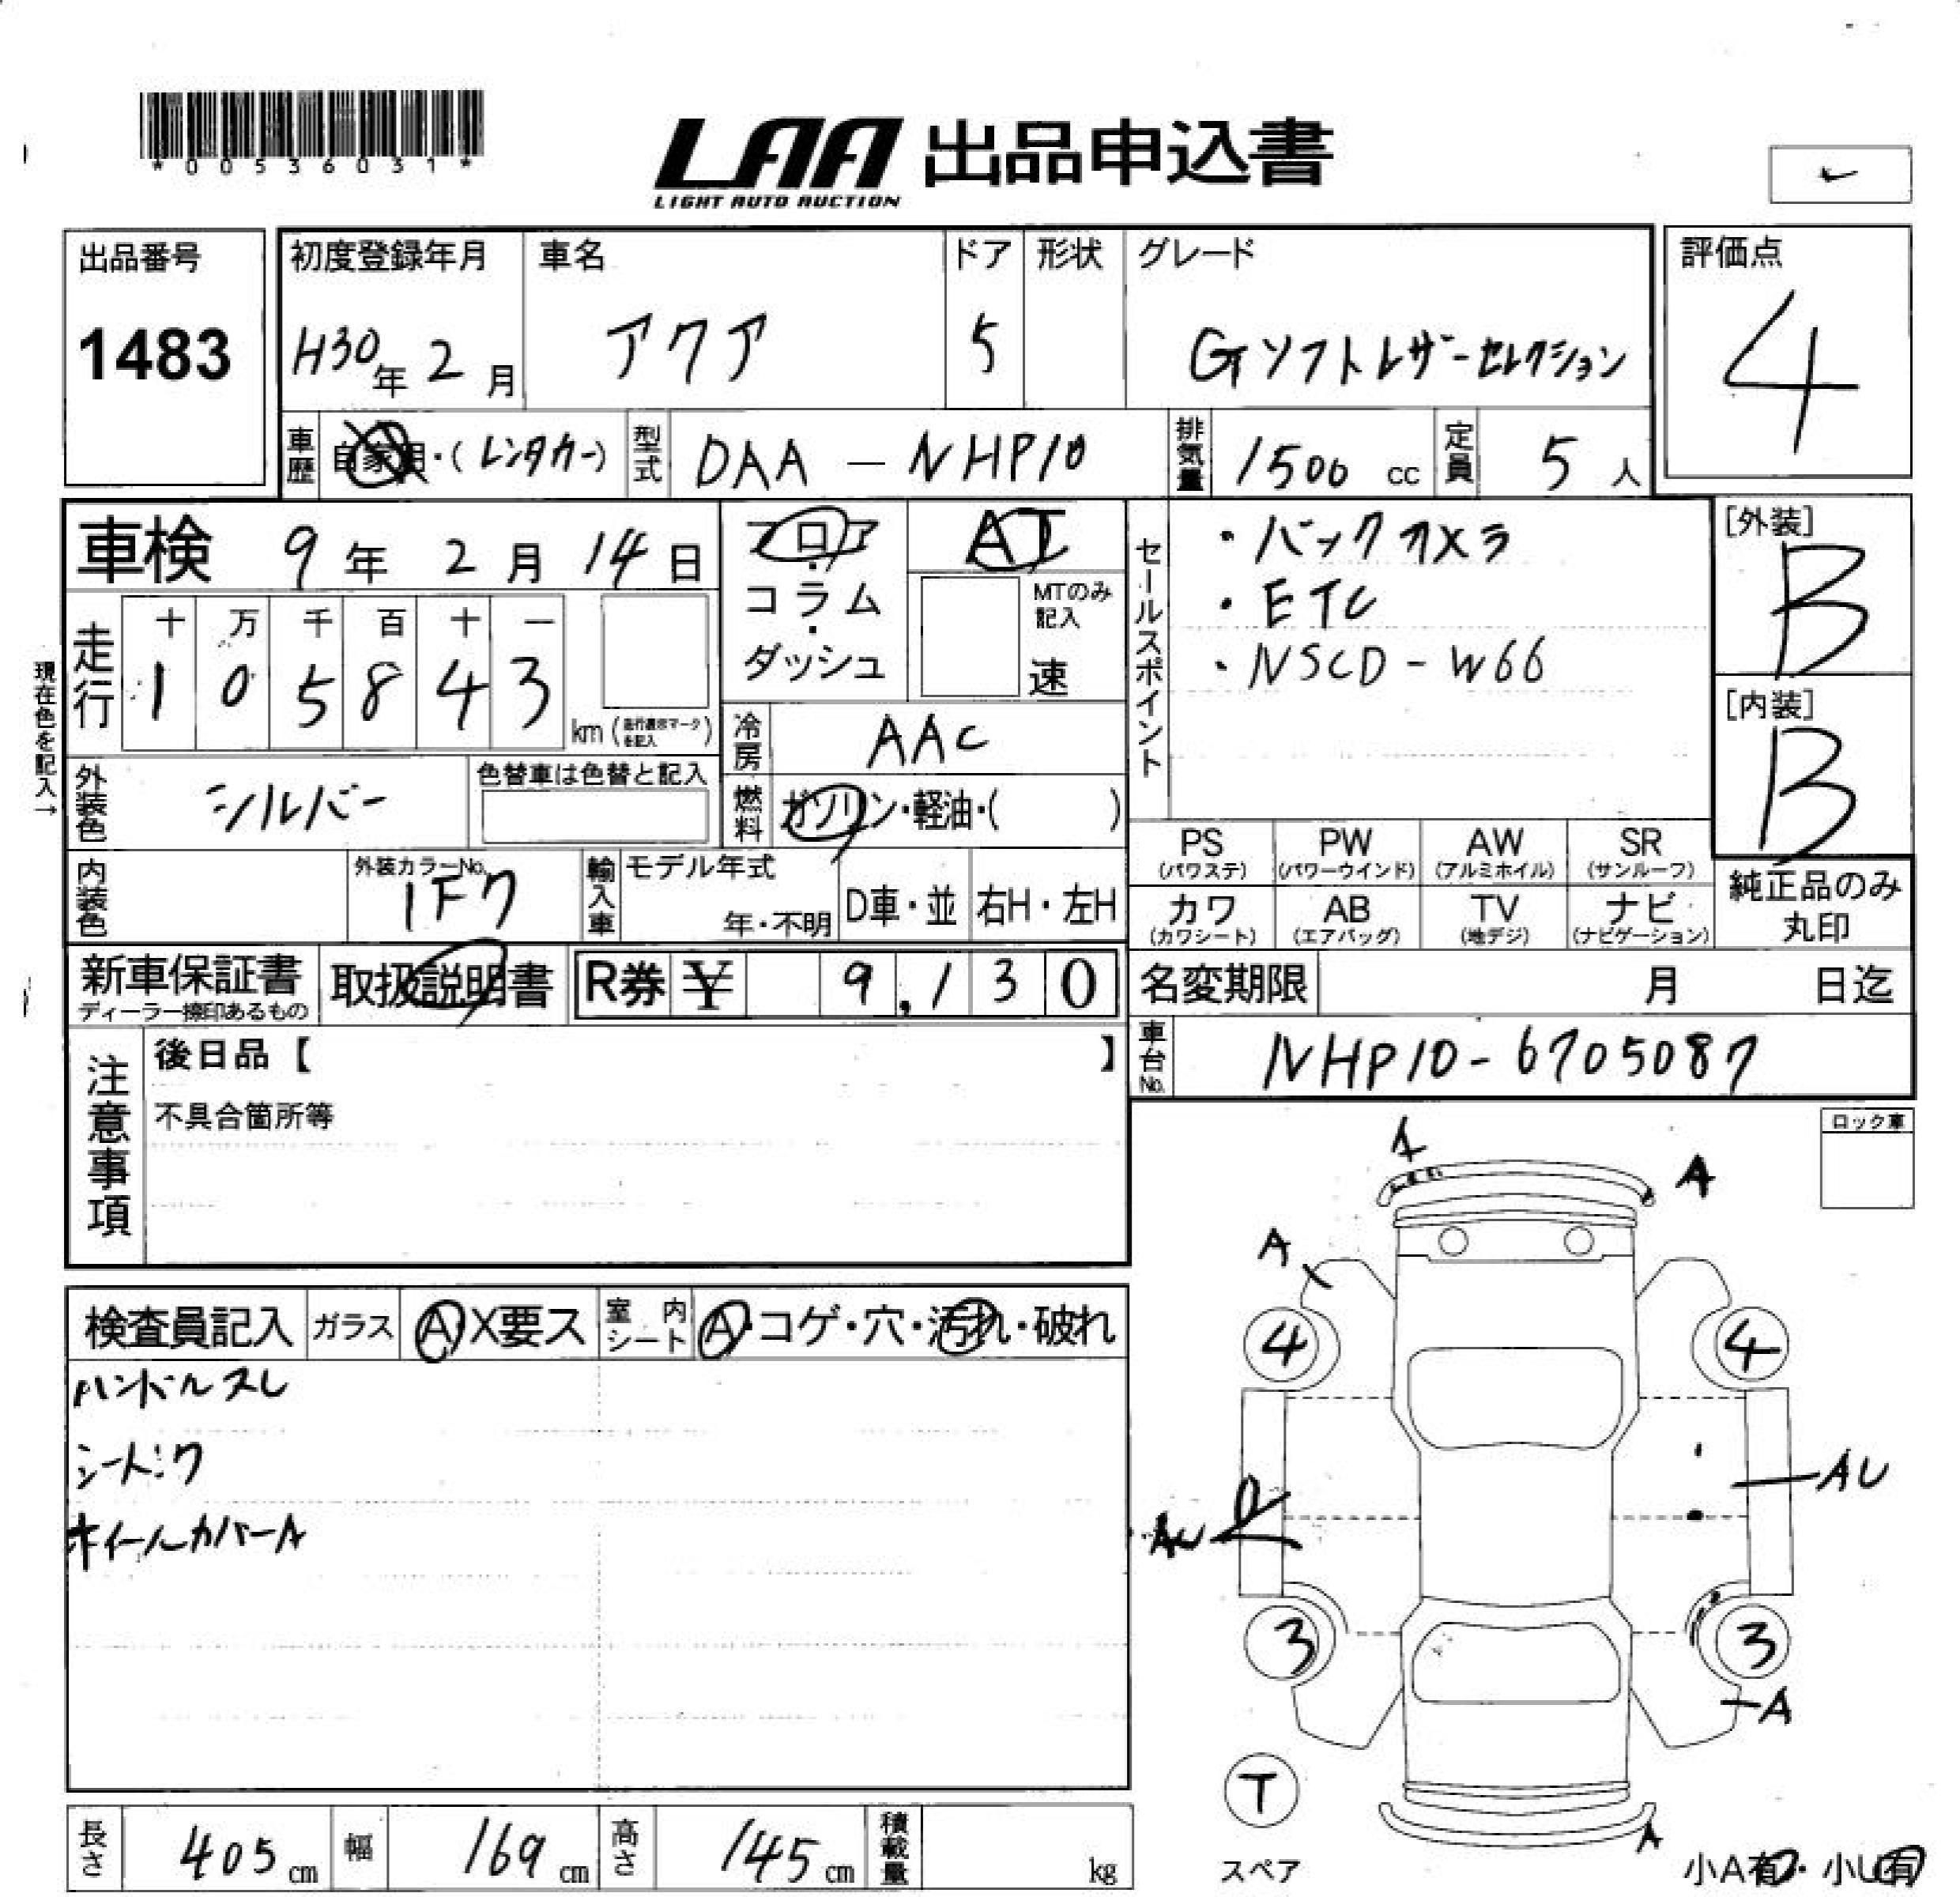 *00536031*
LAA 出品申込書
LIGHT AUTO AUCTION
出品番号
1483
初度登録年月
H30年 2月
車名
アクア
ドア
5
形状
グレード
Gソフトレザーセレクション
評価点
4
車歴
自家用・(レンタカー)
型式
DAA-NHP10
排気量
1500 cc
定員
5 人
車検 9年 2月 14日
フロア
・
コラム
・
ダッシュ
AT
MTのみ
記入
速
セールスポイント
・バックカメラ
・ETC
・NSCD-W66
[外装]
B
[内装]
B
現在色を記入→
走行
十 万 千 百 十 一
1 0 5 8 4 3
km (走行表示マークを記入)
冷房
AAC
外装色
シルバー
色替車は色替と記入
燃料
ガソリン・軽油・( )
PS
(パワステ)
PW
(パワーウインド)
AW
(アルミホイル)
SR
(サンルーフ)
カワ
(カワシート)
AB
(エアバッグ)
TV
(地デジ)
ナビ
(ナビゲーション)
純正品のみ
丸印
内装色
外装カラーNo.
1F7
輸入車
モデル年式
年・不明
D車・並
右H・左H
新車保証書
ディーラー捺印あるもの
取扱説明書
R券 ¥ 9,130
名変期限 月 日迄
車台No.
NHP10-6705087
注意事項
後日品【 】
不具合箇所等
ロック車
検査員記入
ガラス
A X要ス
室内
シート
A・コゲ・穴・汚れ・破れ
ハンドルスレ
ホイールカバーA
A
A
4
4
AU
AU
3
3
A
T
スペア
A
小A有・小U有
長さ
405 cm
幅
169 cm
高さ
145 cm
積載量
kg